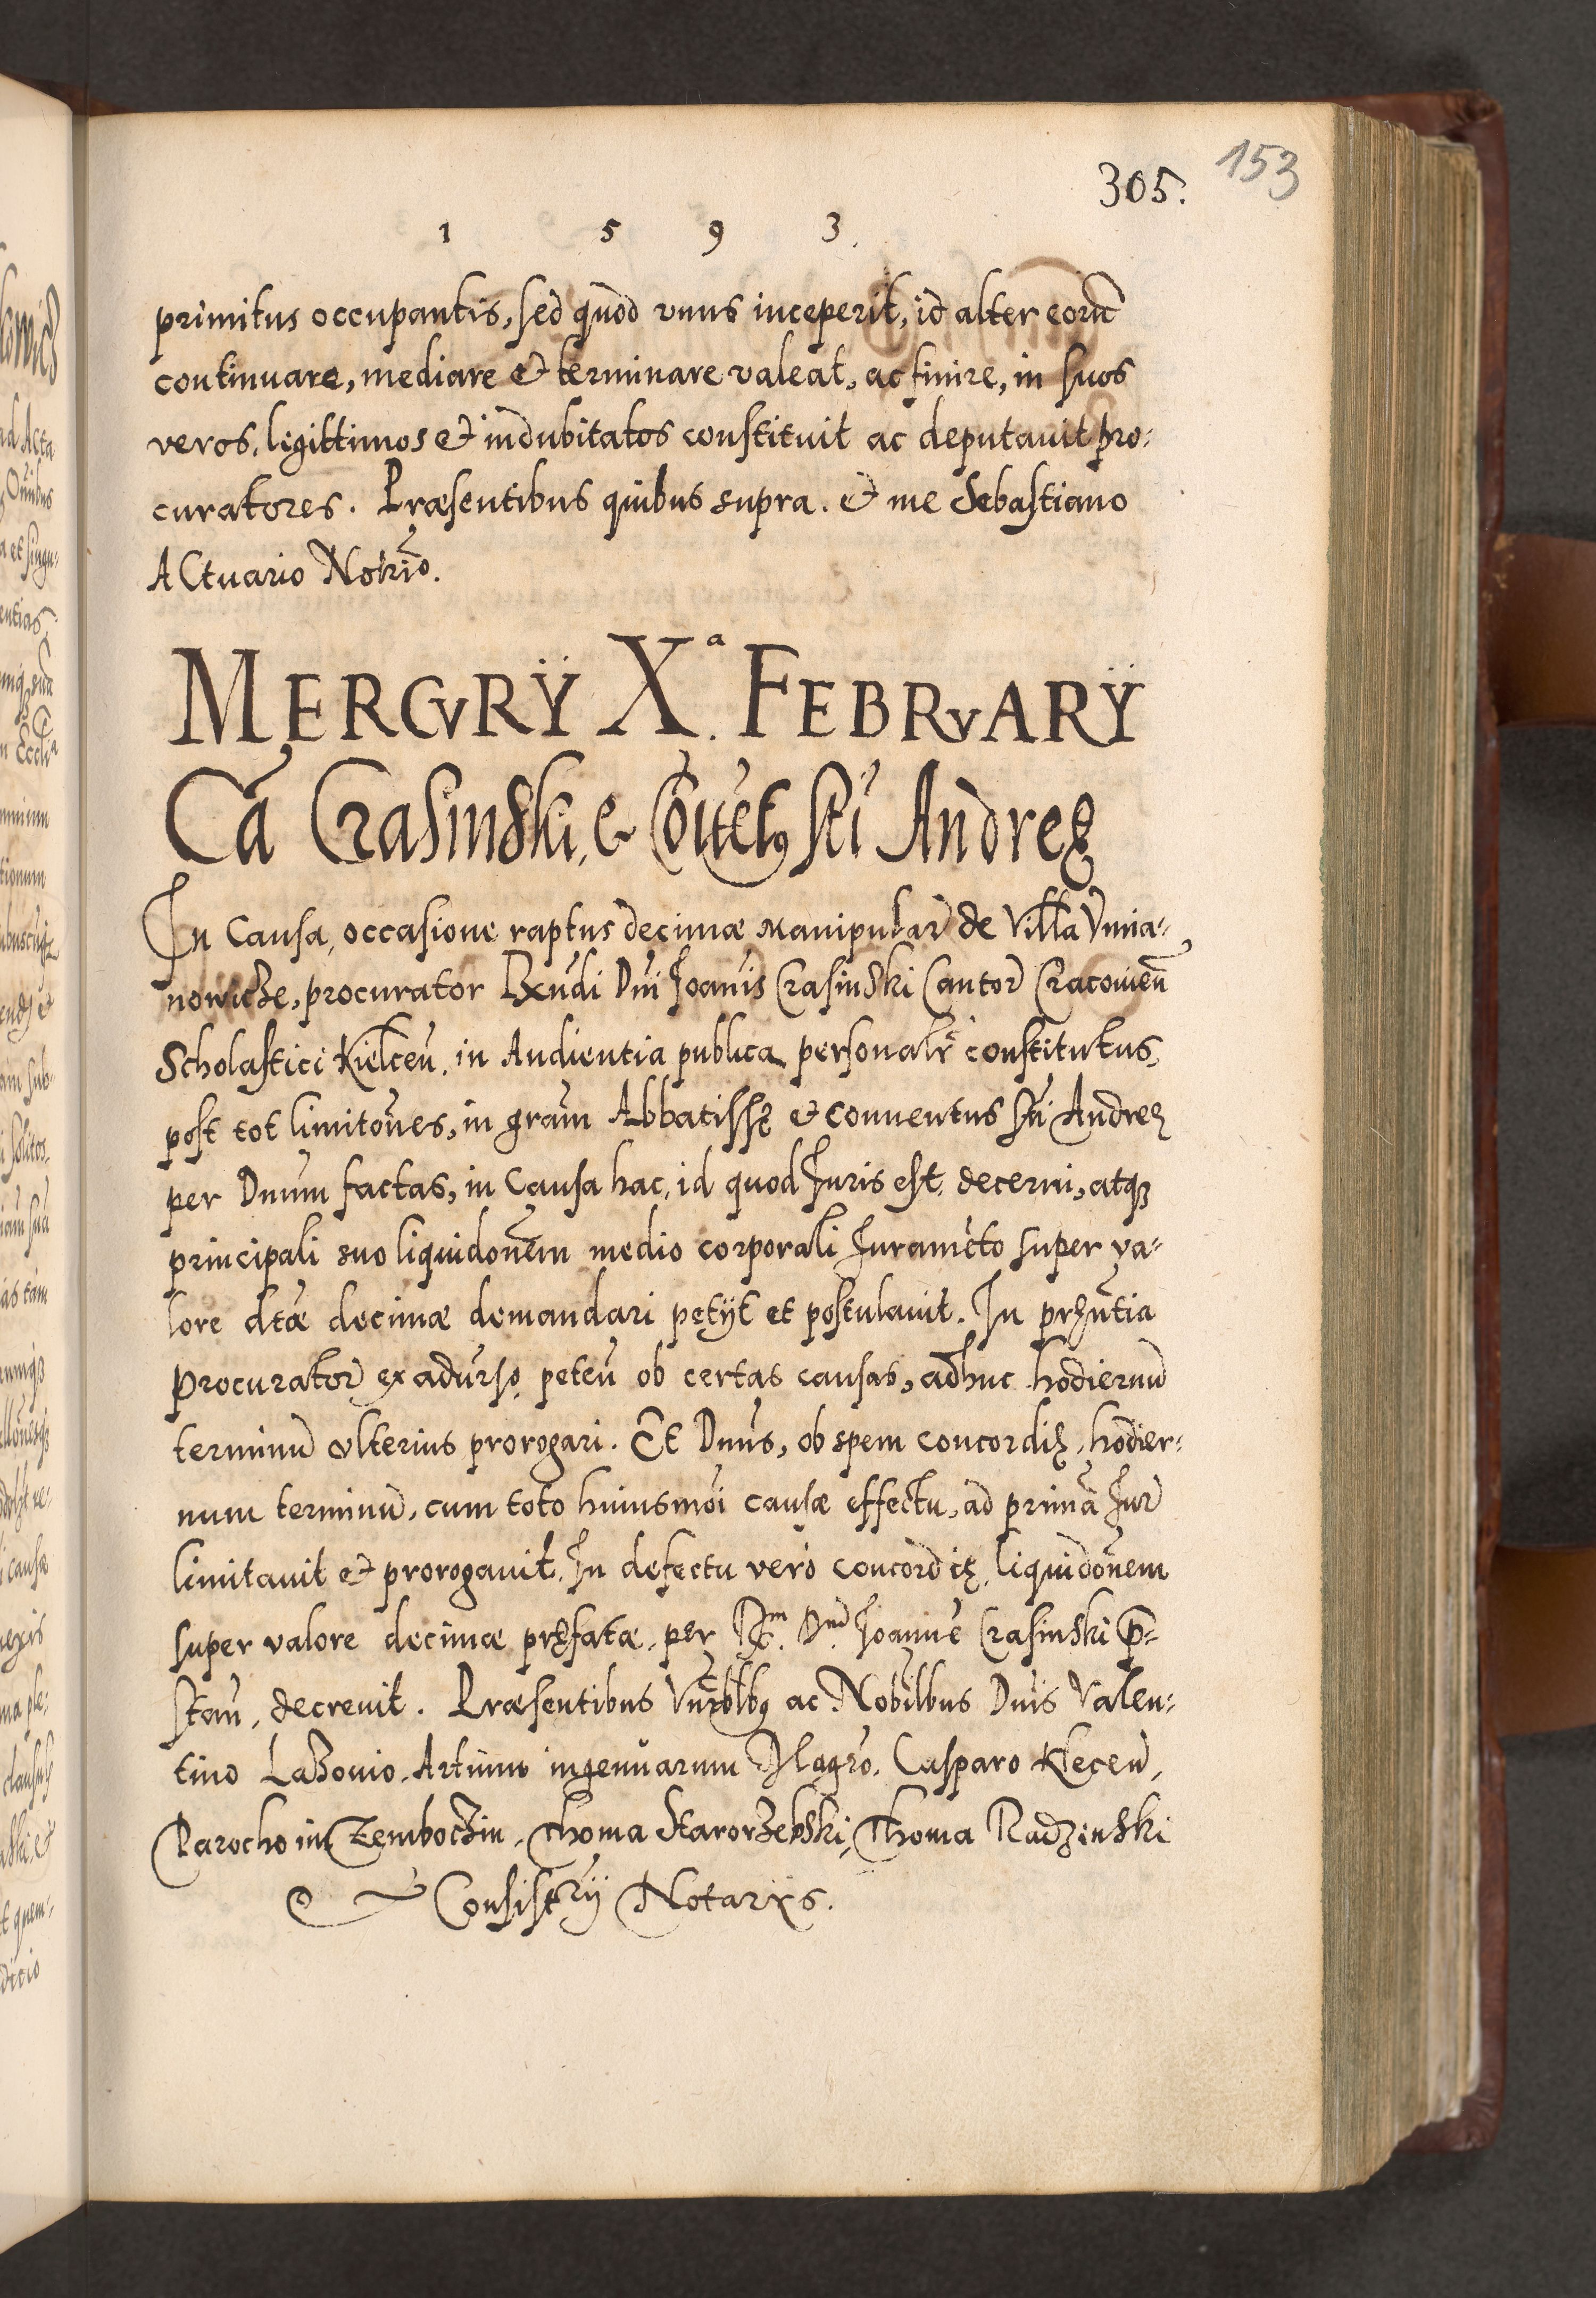 153
305.
1 5 9 3.
primitus occupantis, sed quod vnus inceperit, id alter eorū
continuare, mediare & terminare valeat, ac finire, in suos
veros, legittimos & indubitatos constituit ac deputauit pro:
curatores. Præsentibus quibus supra. & me Sebastiano
Actuario Notrio.
MERCVRŸ Xª. FEBRVARŸ
Cā Crasinski, & Cōuētꝰ Sti Andreę
In Causa, occasione raptus decimæ manipular de Villa Vmia-
nowicze, procurator Rxndi Dni Joanis Crasinski Cantor Cracouien̄
Scholastici Kielcen̄, in Audientia publica personalr constitutus,
post tot limitōnes, in gram Abbatissę & Conuentus Sti Andreę
per Dnum factas, in Causa hac, id quod Juris est, decerni, atqꝫ
principali suo liquidōnem medio corporali Juramēto super va-
lore dtæ decimæ demandari petÿt et postulauit. In pręntia
Procurator ex aduerso peten̄ ob certas causas, adhuc hodiernū
terminū vlterius prorogari. Et Dnus, ob spem concordię, hodier:
num terminū, cum toto huiusmōi causæ effectu, ad primā Jur
limitauit & prorogauit. In defectu vero concordię, liquidōnem
super valore decimæ pręfatæ, per Dnū Joannē Crasinski p̄-
stan̄, decreuit. Præsentibus ac Nobilbus Dnis Valen:
tino Lazouio, Artium ingenuarum Magro, Casparo Klecen̄,
Parocho in Czemboczin, Thoma Starorzebski, Thoma Radzinski
Consistrÿ Notarÿs.